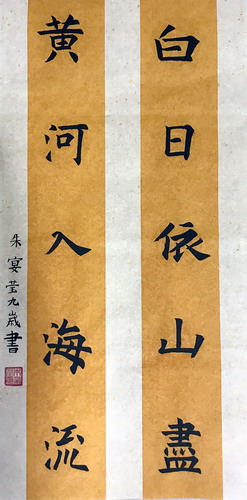 白日依山盡
黄河入海流
朱宴莹九歲書